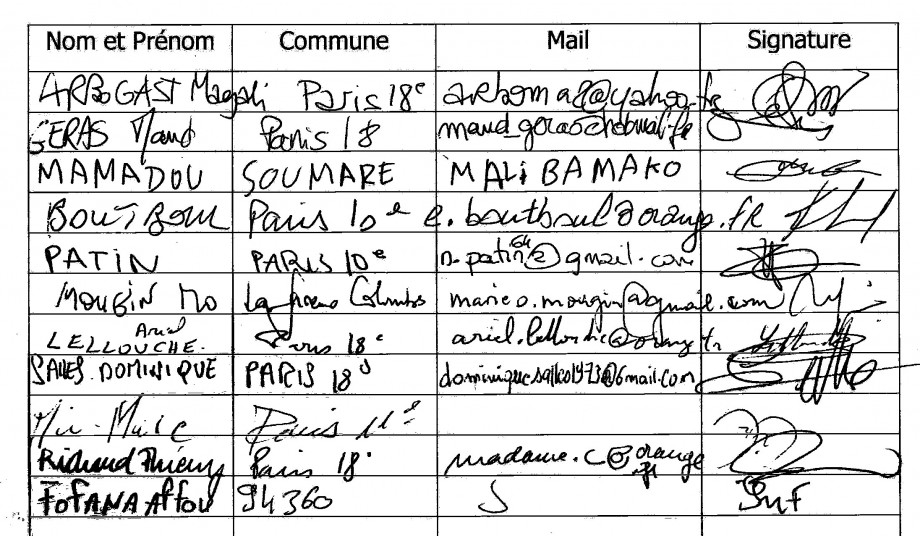 Nom et Prénom Commune Mail Signature
ARBOGAST Magali Paris 18e arboma@yahoo.fr
GERAS Maud Paris 18
MAMADOU SOUMARE MALI BAMAKO
BOUTBOUL Paris 10e e.boutboul@orange.fR
PATIN PARIS 10e n.patin64@gmail.com
MOUGIN MO la Garenne Colombes marieo.mougin@gmail.com
LELLOUCHE Ariel Paris 18e ariel.lellouche@orange.fr
SALLES DOMINIQUE PARIS 18e dominiquesalles1973@Gmail.com
Paris 11e
Richaud Thierry Paris 18e madame.c@orange.fr
FOFANA Affou 94360